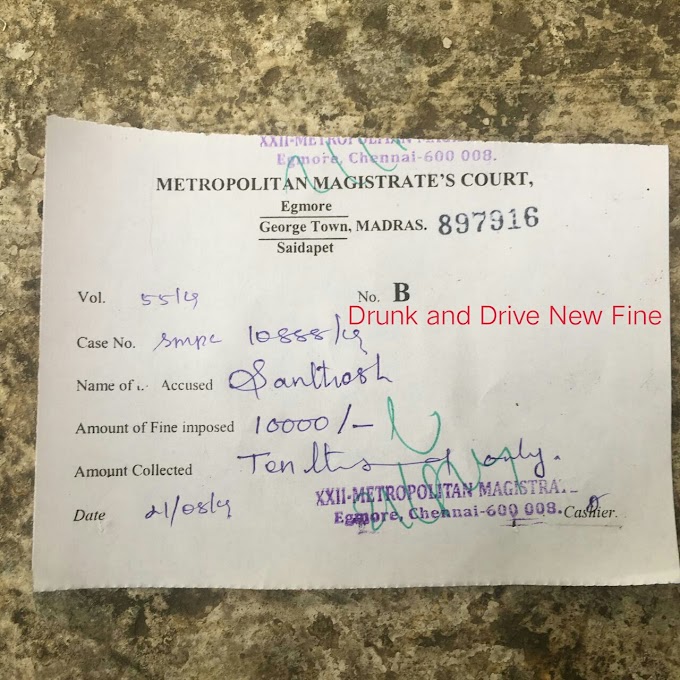 XXII-METROPOLITAN MAGIS
Egmore, Chennai-600 008.
METROPOLITAN MAGISTRATE'S COURT,
Egmore
George Town, MADRAS. 897916
Saidapet
Vol. 55/19 No. B
Drunk and Drive New Fine
Case No. smpc
Name of Accused Santhosh
Amount of Fine imposed 10000/-
Amount Collected Ten only.
XXII-METROPOLITAN MAGISTRA
Egmore, Chennai-600 008. Cashier.
Date 21/08/19